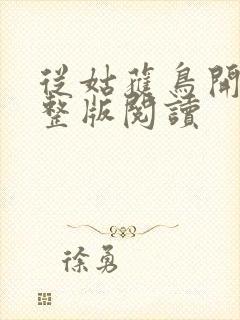 從姑蘸鳥開
整版閱讀
徐勇